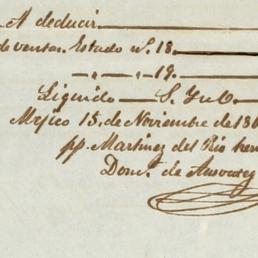 A deducir
de ventas. Estado nº. 18.
" — " — 19.
Liquido — S. Yu O.
Mejico 15. de Noviembre de 186
pp. Martinez del Rio her
Dom. de